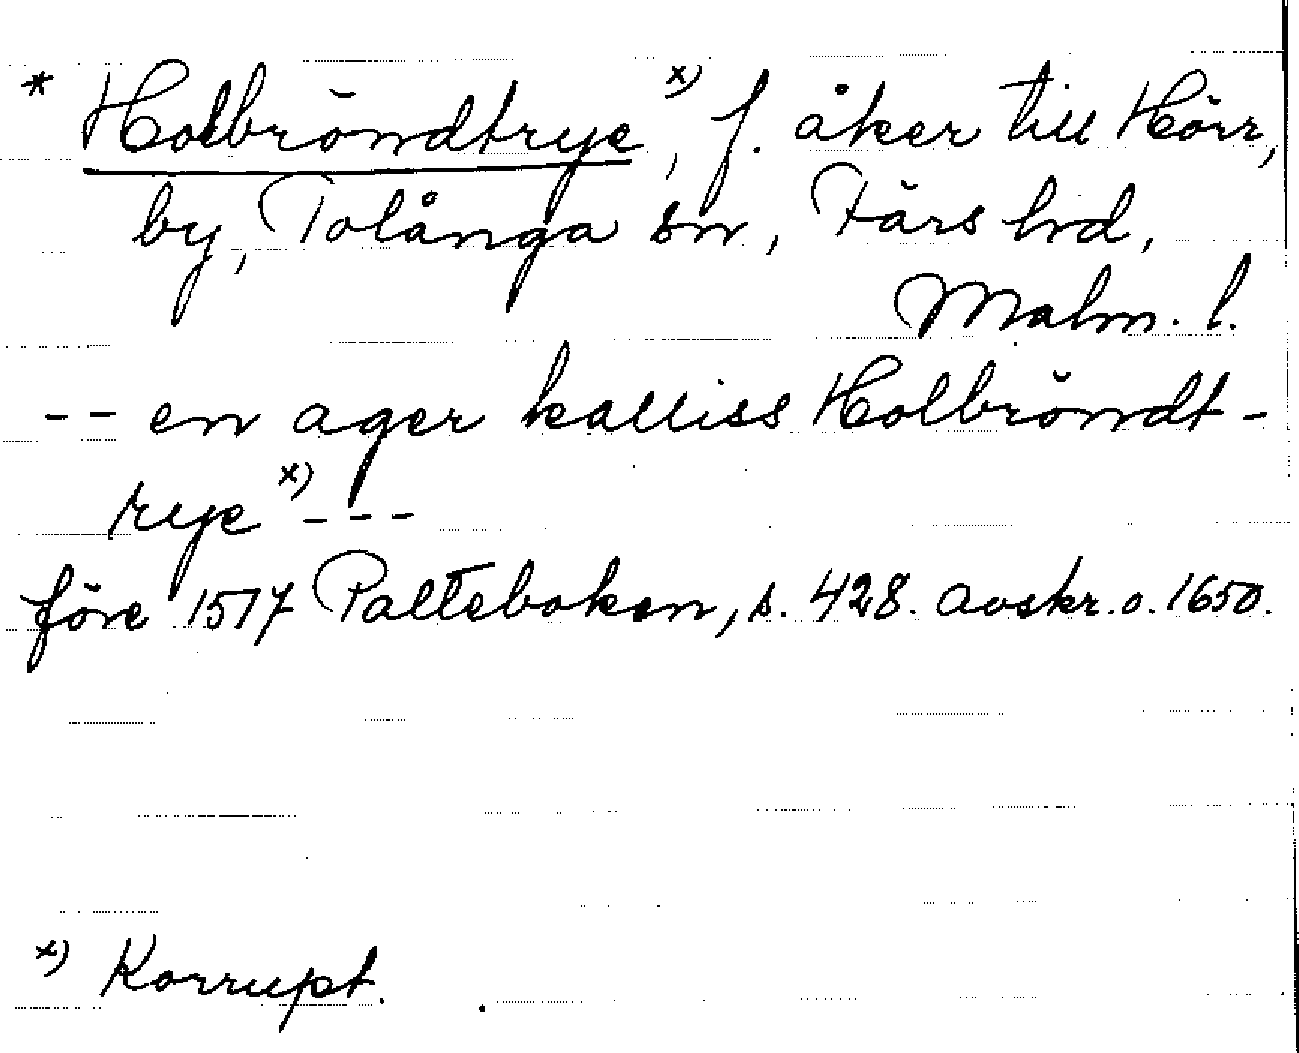 * Holbröndtrye x), f. åker till Hörr,
by, Tolånga sn, Färs hd,
Malm. l.
-- en ager kalliss Holbröndt-
rye x) ---
före 1517 Palteboken, s. 428. avskr. o. 1650.
x) Korrupt.